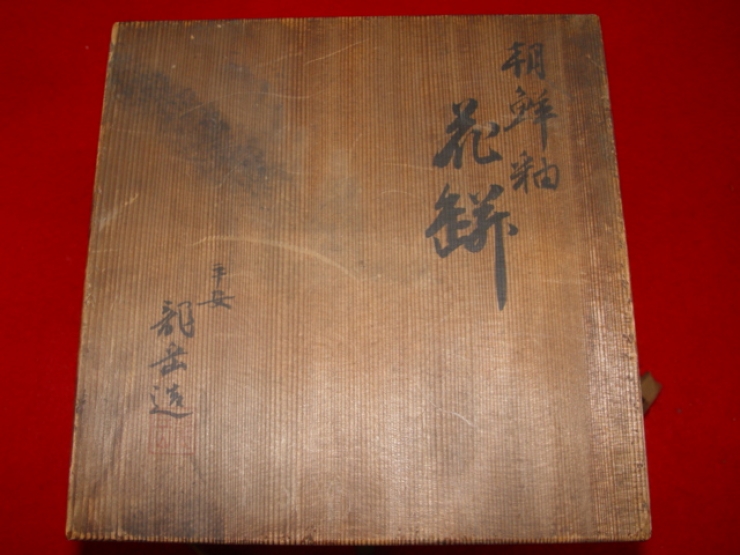 朝鮮釉
花缾
平安
龍岳造